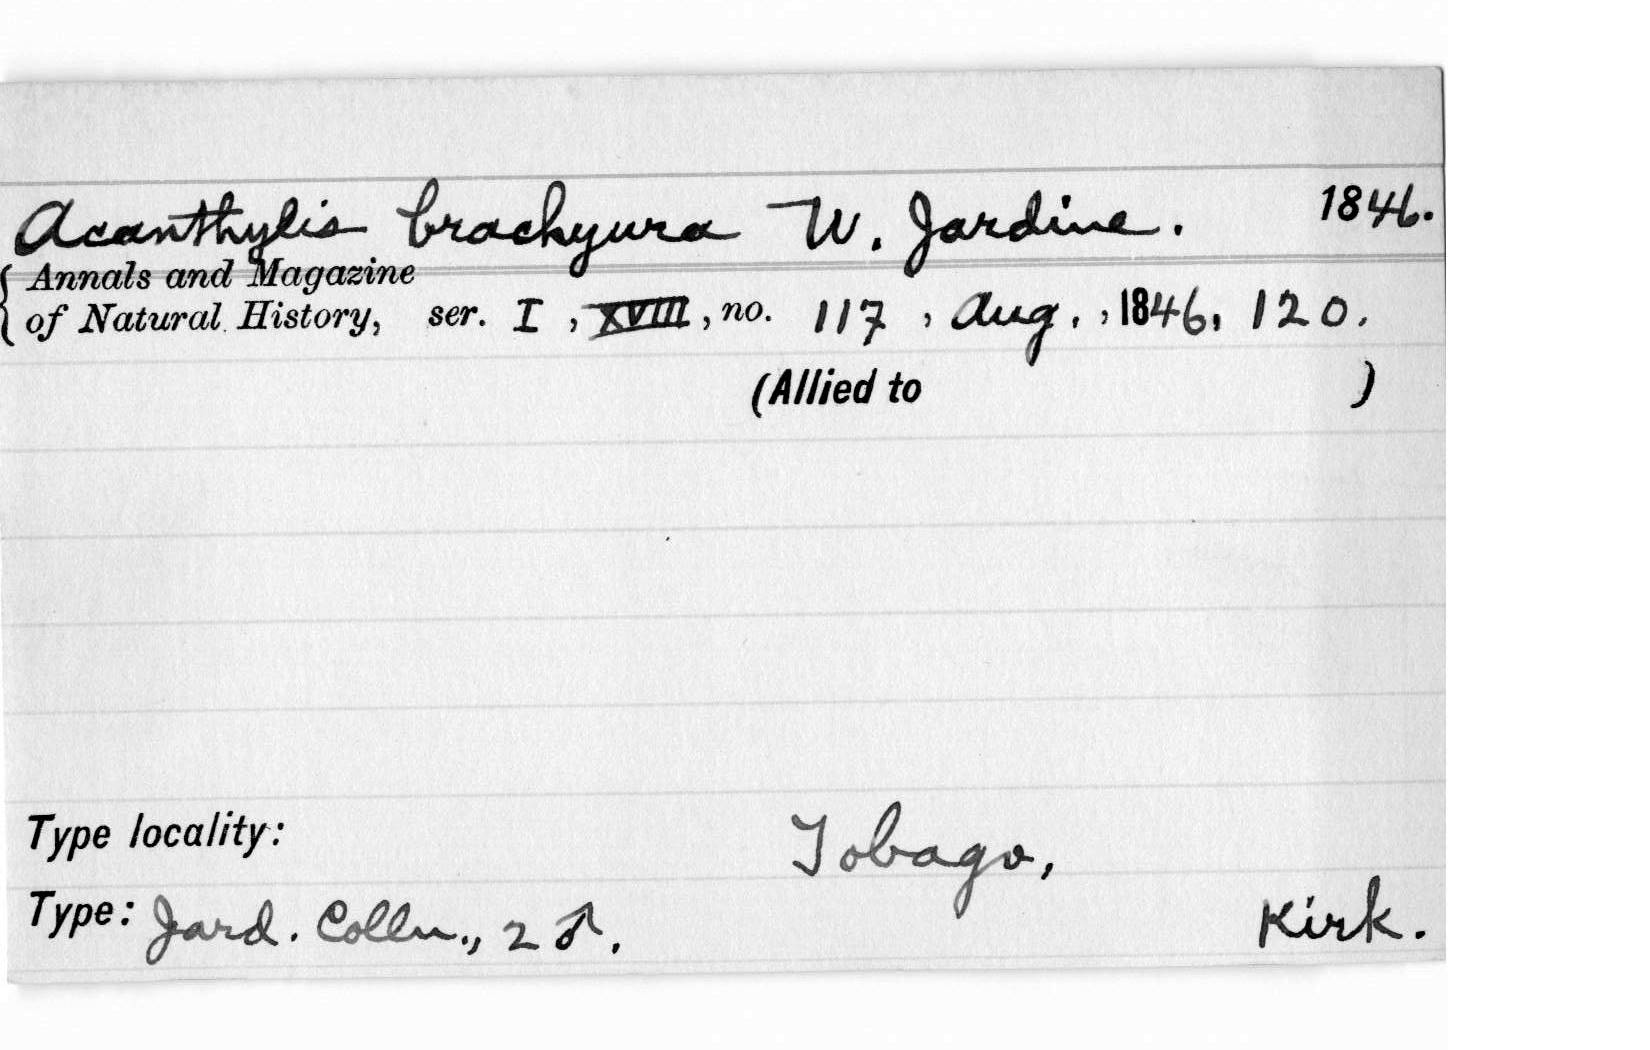 Acanthylis brachyura W. Jardine. 1846.
Annals and Magazine
of Natural History, ser. I, XVIII, no. 117, Aug., 1846, 120.
(Allied to )
Type locality: Tobago,
Type: Jard. Colln., 2 ♂. Kirk.